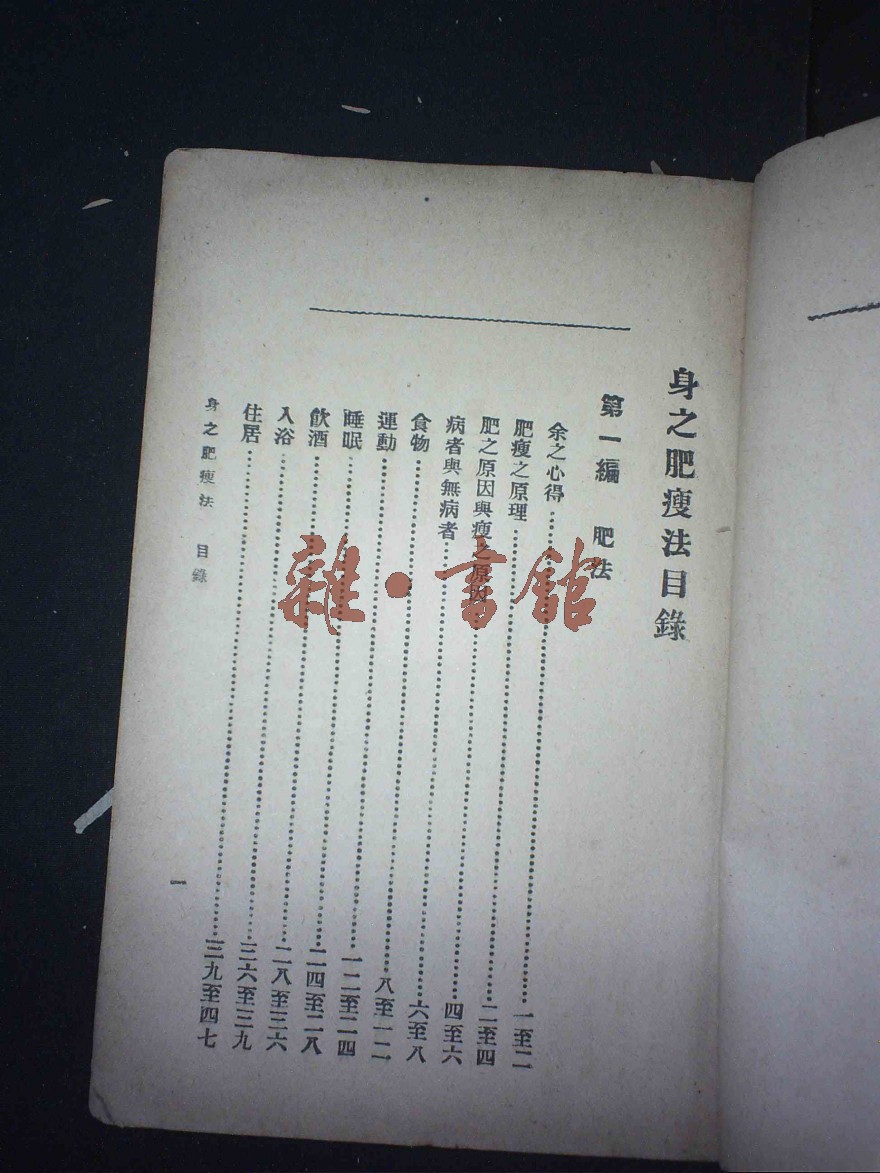 身之肥瘦法目錄
第一編 肥法
余之心得……一至二
肥瘦之原理……二至四
肥之原因與瘦之原因……四至六
病者與無病者……六至八
食物……八至一二
運動……一二至二四
睡眠……二四至二八
飲酒……二八至三六
入浴……三六至三九
住居……三九至四七
身之肥瘦法 目錄
一
雜·書館